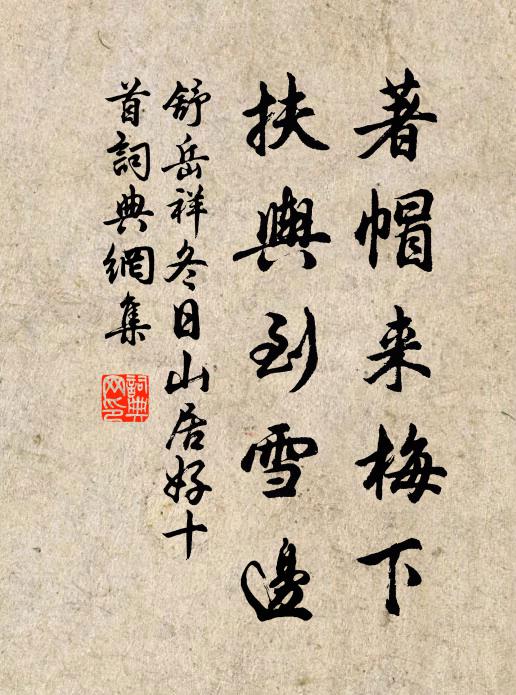 著帽来梅下
扶輿到雪邊
舒岳祥冬日山居好十
首詞典網集
詞典
网印